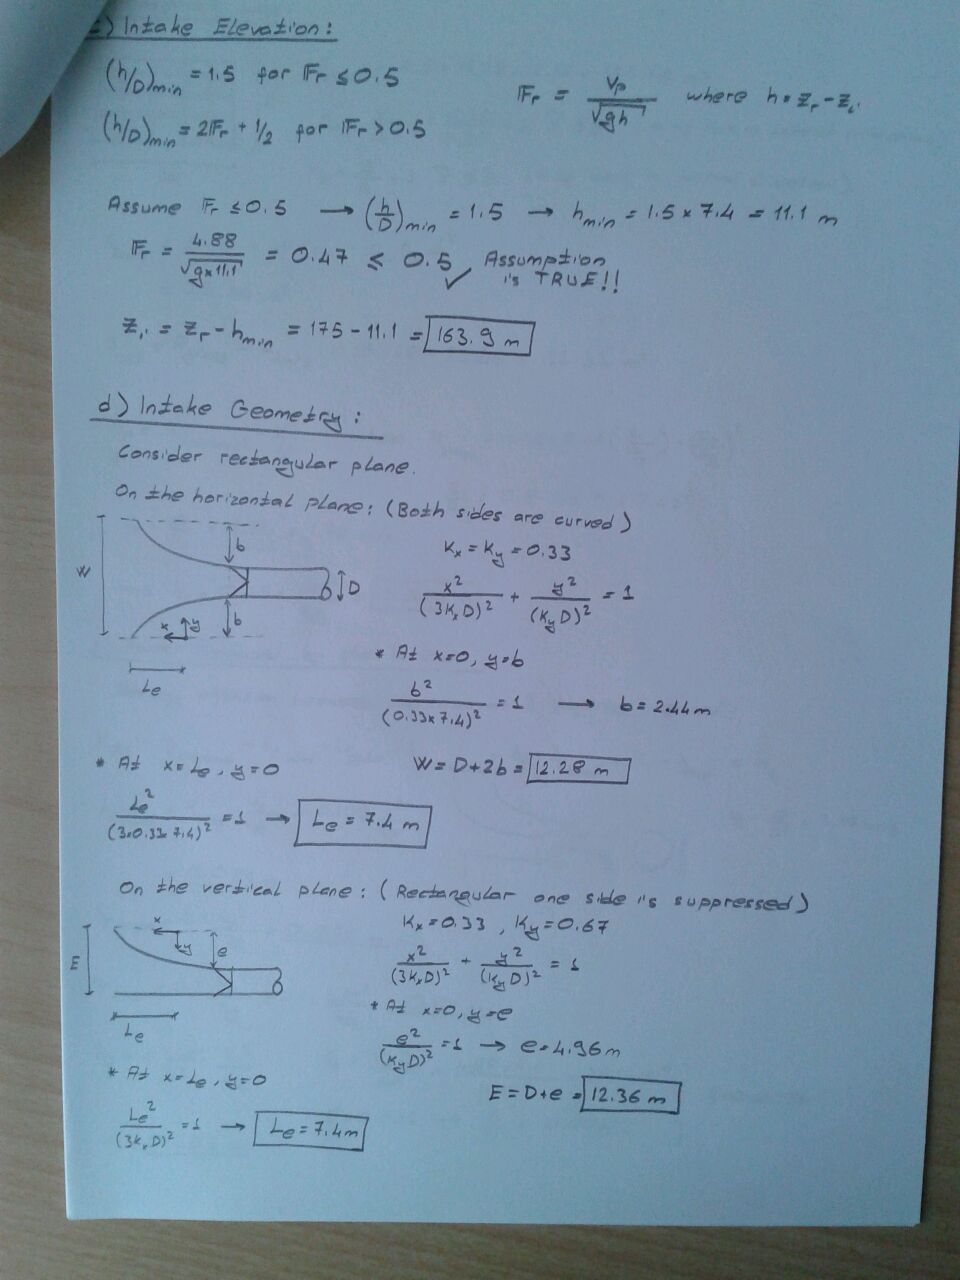 c) Intake Elevation:
(h/D)min = 1.5 for Fr ≤ 0.5
Fr = Vp / √gh where h = zr - zi
(h/D)min = 2Fr + 1/2 for Fr > 0.5
Assume Fr ≤ 0.5 → (h/D)min = 1.5 → hmin = 1.5 x 7.4 = 11.1 m
Fr = 4.88 / √g x 11.1 = 0.47 ≤ 0.5 ✓ Assumption is TRUE!!
zi = zr - hmin = 175 - 11.1 = 163.9 m
d) Intake Geometry:
Consider rectangular plane.
On the horizontal plane: (Both sides are curved)
W
b
D
x
y
b
Le
Kx = Ky = 0.33
x² / (3KxD)² + y² / (KyD)² = 1
* At x=0, y=b
b² / (0.33x7.4)² = 1 → b = 2.44 m
* At x = Le, y = 0
W = D+2b = 12.28 m
Le² / (3x0.33x7.4)² = 1 → Le = 7.4 m
On the vertical plane: (Rectangular one side is suppressed)
E
x
y
e
Le
Kx = 0.33, Ky = 0.67
x² / (3KxD)² + y² / (KyD)² = 1
* At x=0, y=e
e² / (KyD)² = 1 → e = 4.96 m
* At x = Le, y = 0
E = D+e = 12.36 m
Le² / (3KxD)² = 1 → Le = 7.4 m